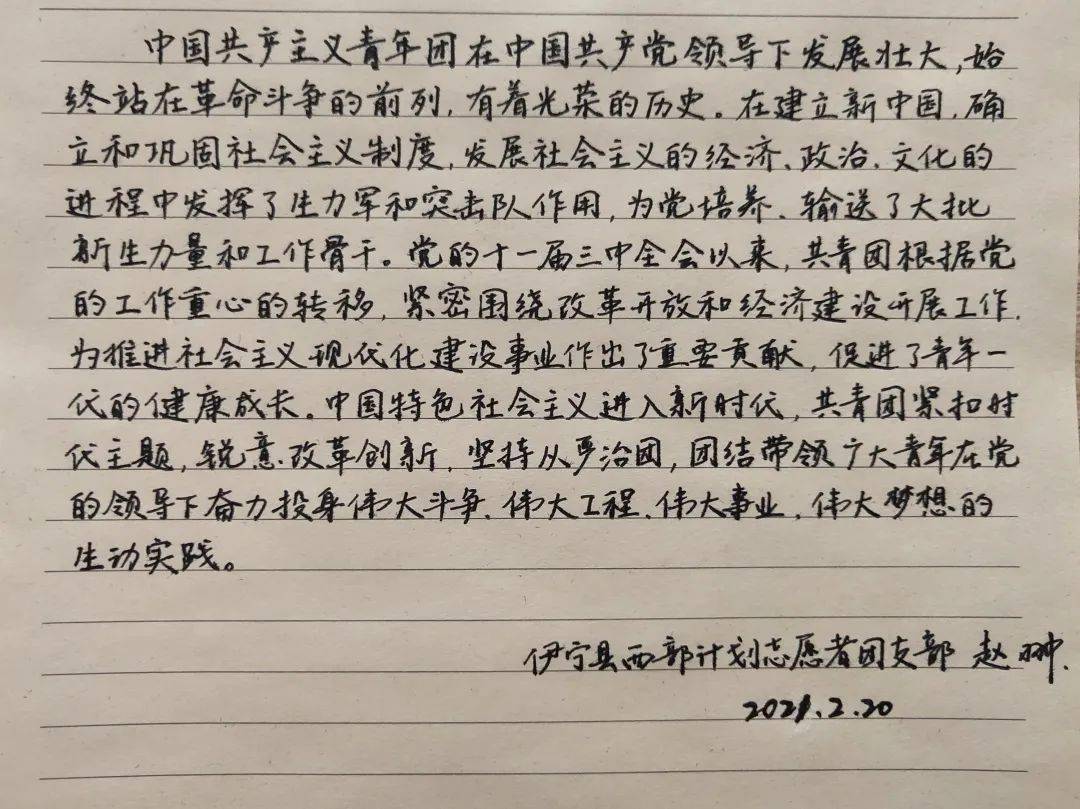 中国共产主义青年团在中国共产党领导下发展壮大,始
终站在革命斗争的前列,有着光荣的历史。在建立新中国,确
立和巩固社会主义制度,发展社会主义的经济、政治、文化的
进程中发挥了生力军和突击队作用,为党培养、输送了大批
新生力量和工作骨干。党的十一届三中全会以来,共青团根据党
的工作重心的转移,紧密围绕改革开放和经济建设开展工作,
为推进社会主义现代化建设事业作出了重要贡献,促进了青年一
代的健康成长。中国特色社会主义进入新时代,共青团紧扣时
代主题,锐意改革创新,坚持从严治团,团结带领广大青年在党
的领导下奋力投身伟大斗争、伟大工程、伟大事业、伟大梦想的
生动实践。
伊宁县西部计划志愿者团支部 赵翀.
2021.2.20